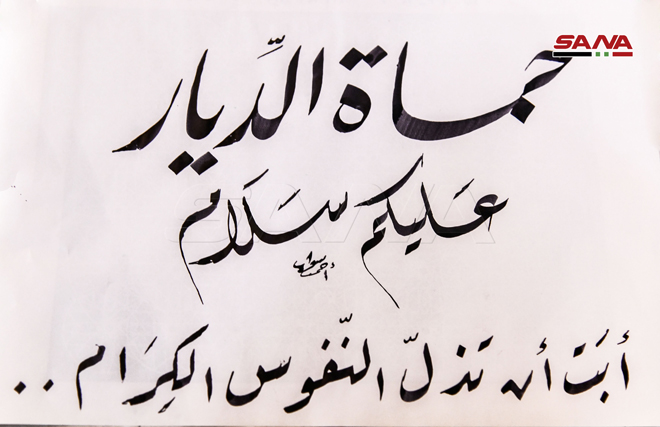 SANA
حماة الدِّيار
عَليكم سَلَام
أبَت أن تذلّ النّفوس الكِرَام ..